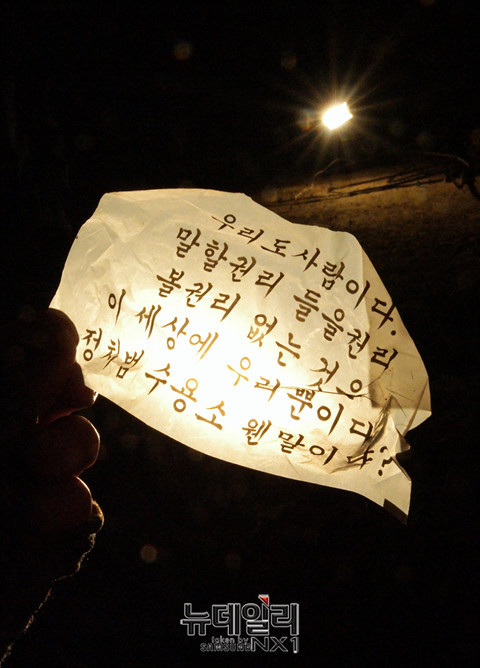 우리도사람이다.
말할권리 들을권리
볼권리 없는 것은
이 세상에 우리뿐이다
정치범 수용소 웬 말이냐?
뉴데일리
taken by
SAMSUNG NX1